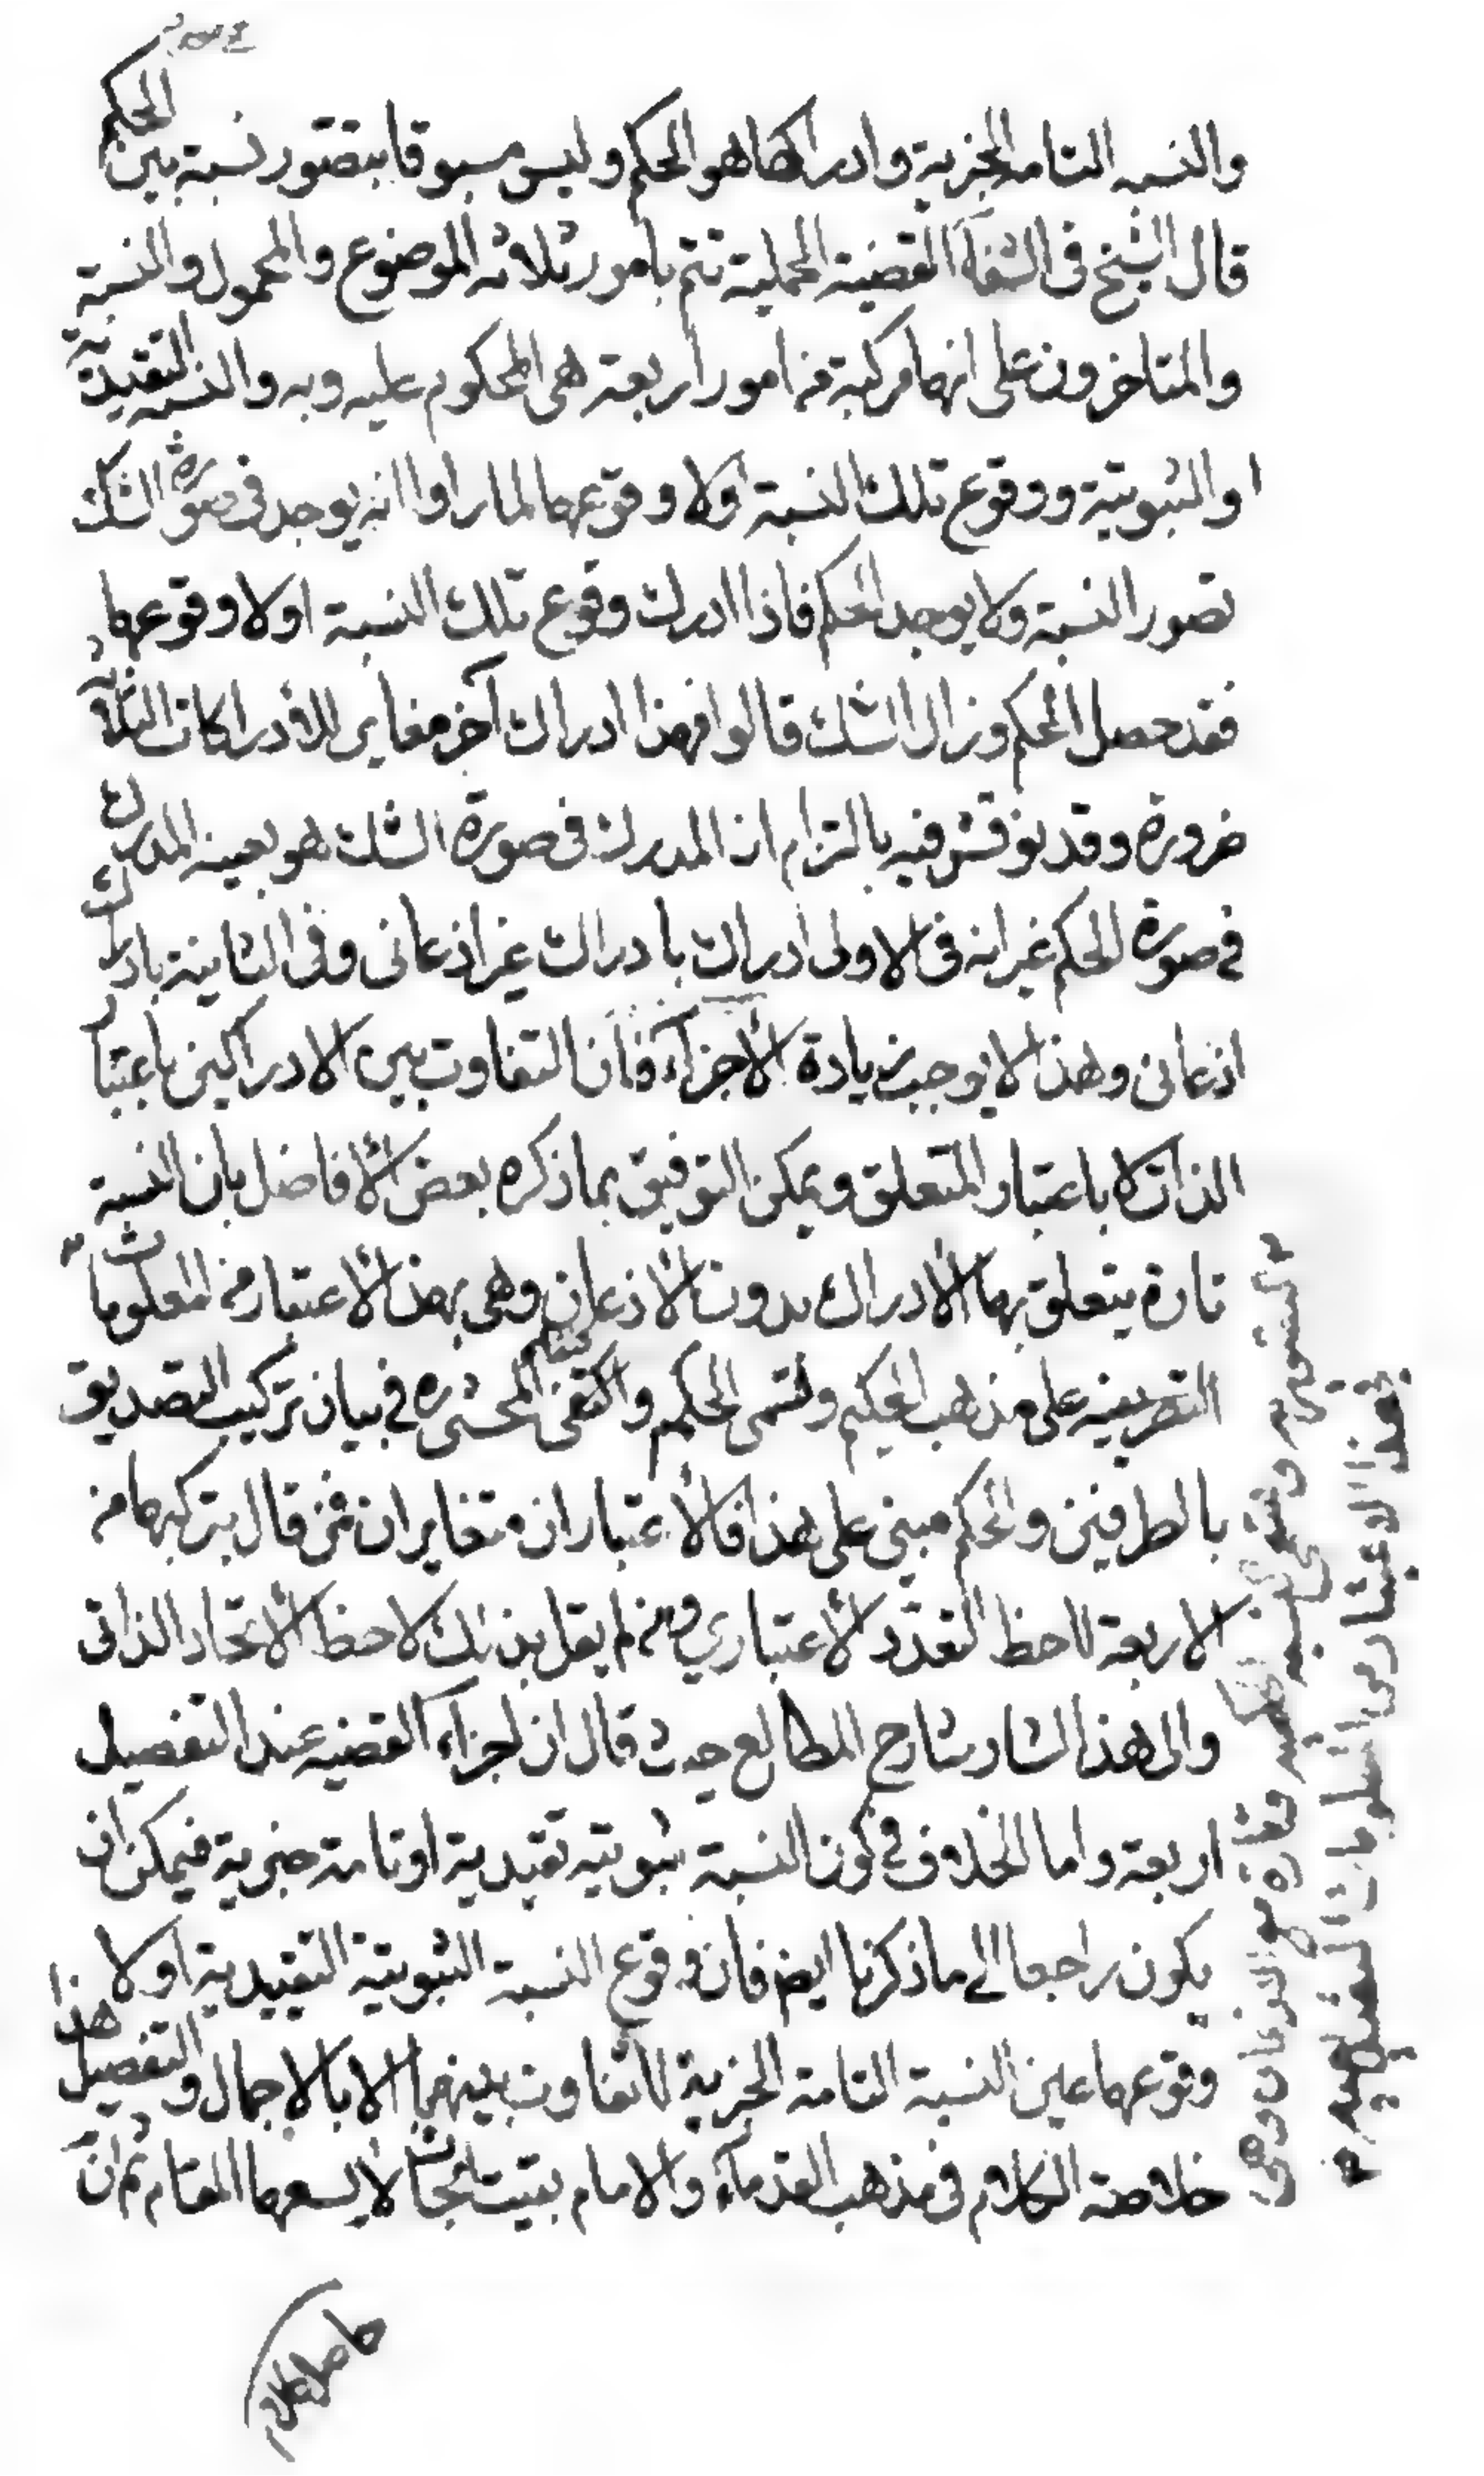 والنسبه التامه الخبرية وادراكها هو الحكم وليس مسبوقا بتصور نسبة بين الحكم
قال الشيخ فى الشفآء القضية الحملية تتم بامور ثلاثه الموضوع والمحمول والنسبة
والمتاخرون على انها مركبة من امور اربعة هى المحكوم عليه وبه والنسبه التقيدية
او الثبوتية ووقوع تلك النسبة اولا وقوعها لما راوا انه يوجد فى صورة الشك
تصور النسبة ولا يوجد الحكم فاذا ادرك وقوع تلك النسبة اولا وقوعها
فقد حصل الحكم وزال الشك قالوا فهذا ادراك آخر مغاير للادراكات الثلاثة
ضرورة وقد نوقش فيه بالتزام ان المدرك فى صورة الشك هو بعينه المدرك
فى صورة الحكم غير انه فى الاولى ادراك بادراك غير اذعانى وفى الثانية بادراك
اذعانى وهذا لا يوجب زيادة الأجزآء فان التفاوت بين الادراكين باعتبار
الذات لا باعتبار المتعلق ويمكن التوفيق بما ذكره بعض الأفاضل بان النسبة
تارة يتعلق بها الأدراك بدون الأذعان وهى بهذا الأعتبار من المعلومات
على مذهب الحكيم وتسمى الحكم واكتفى المحشى ره فى بيان تركيب التصديق
بالطرفين والحكم مبنى على هذا فالأعتباران متغايران فمن قال بتركبها من
الاربعة لاحظ التعدّد الأعتباري ومن لم يقل بذلك لاحظ الأتحاد الذاتى
والى هذا اشار شارح المطالع حيث قال ان اجزاء القضيه عند التفصيل
اربعة واما الخلاف فى كون النسبة ثبوتية تقيدية او تامة خبرية فيمكن ان
يكون راجعا الى ما ذكرنا ايضا فان وقوع النسبة الثبوتية التقييدية اولا
وقوعها عين النسبة التامة الخبرية لا تفاوت بينهما الا بالاجمال والتفصيل هذا
خلاصة الكلام فى مذهب القدمآء والامام بقيت ابحاث لا يسعها المقام ثم ان
حاصل الكلام
بهذا الاعتبار من المعلومات